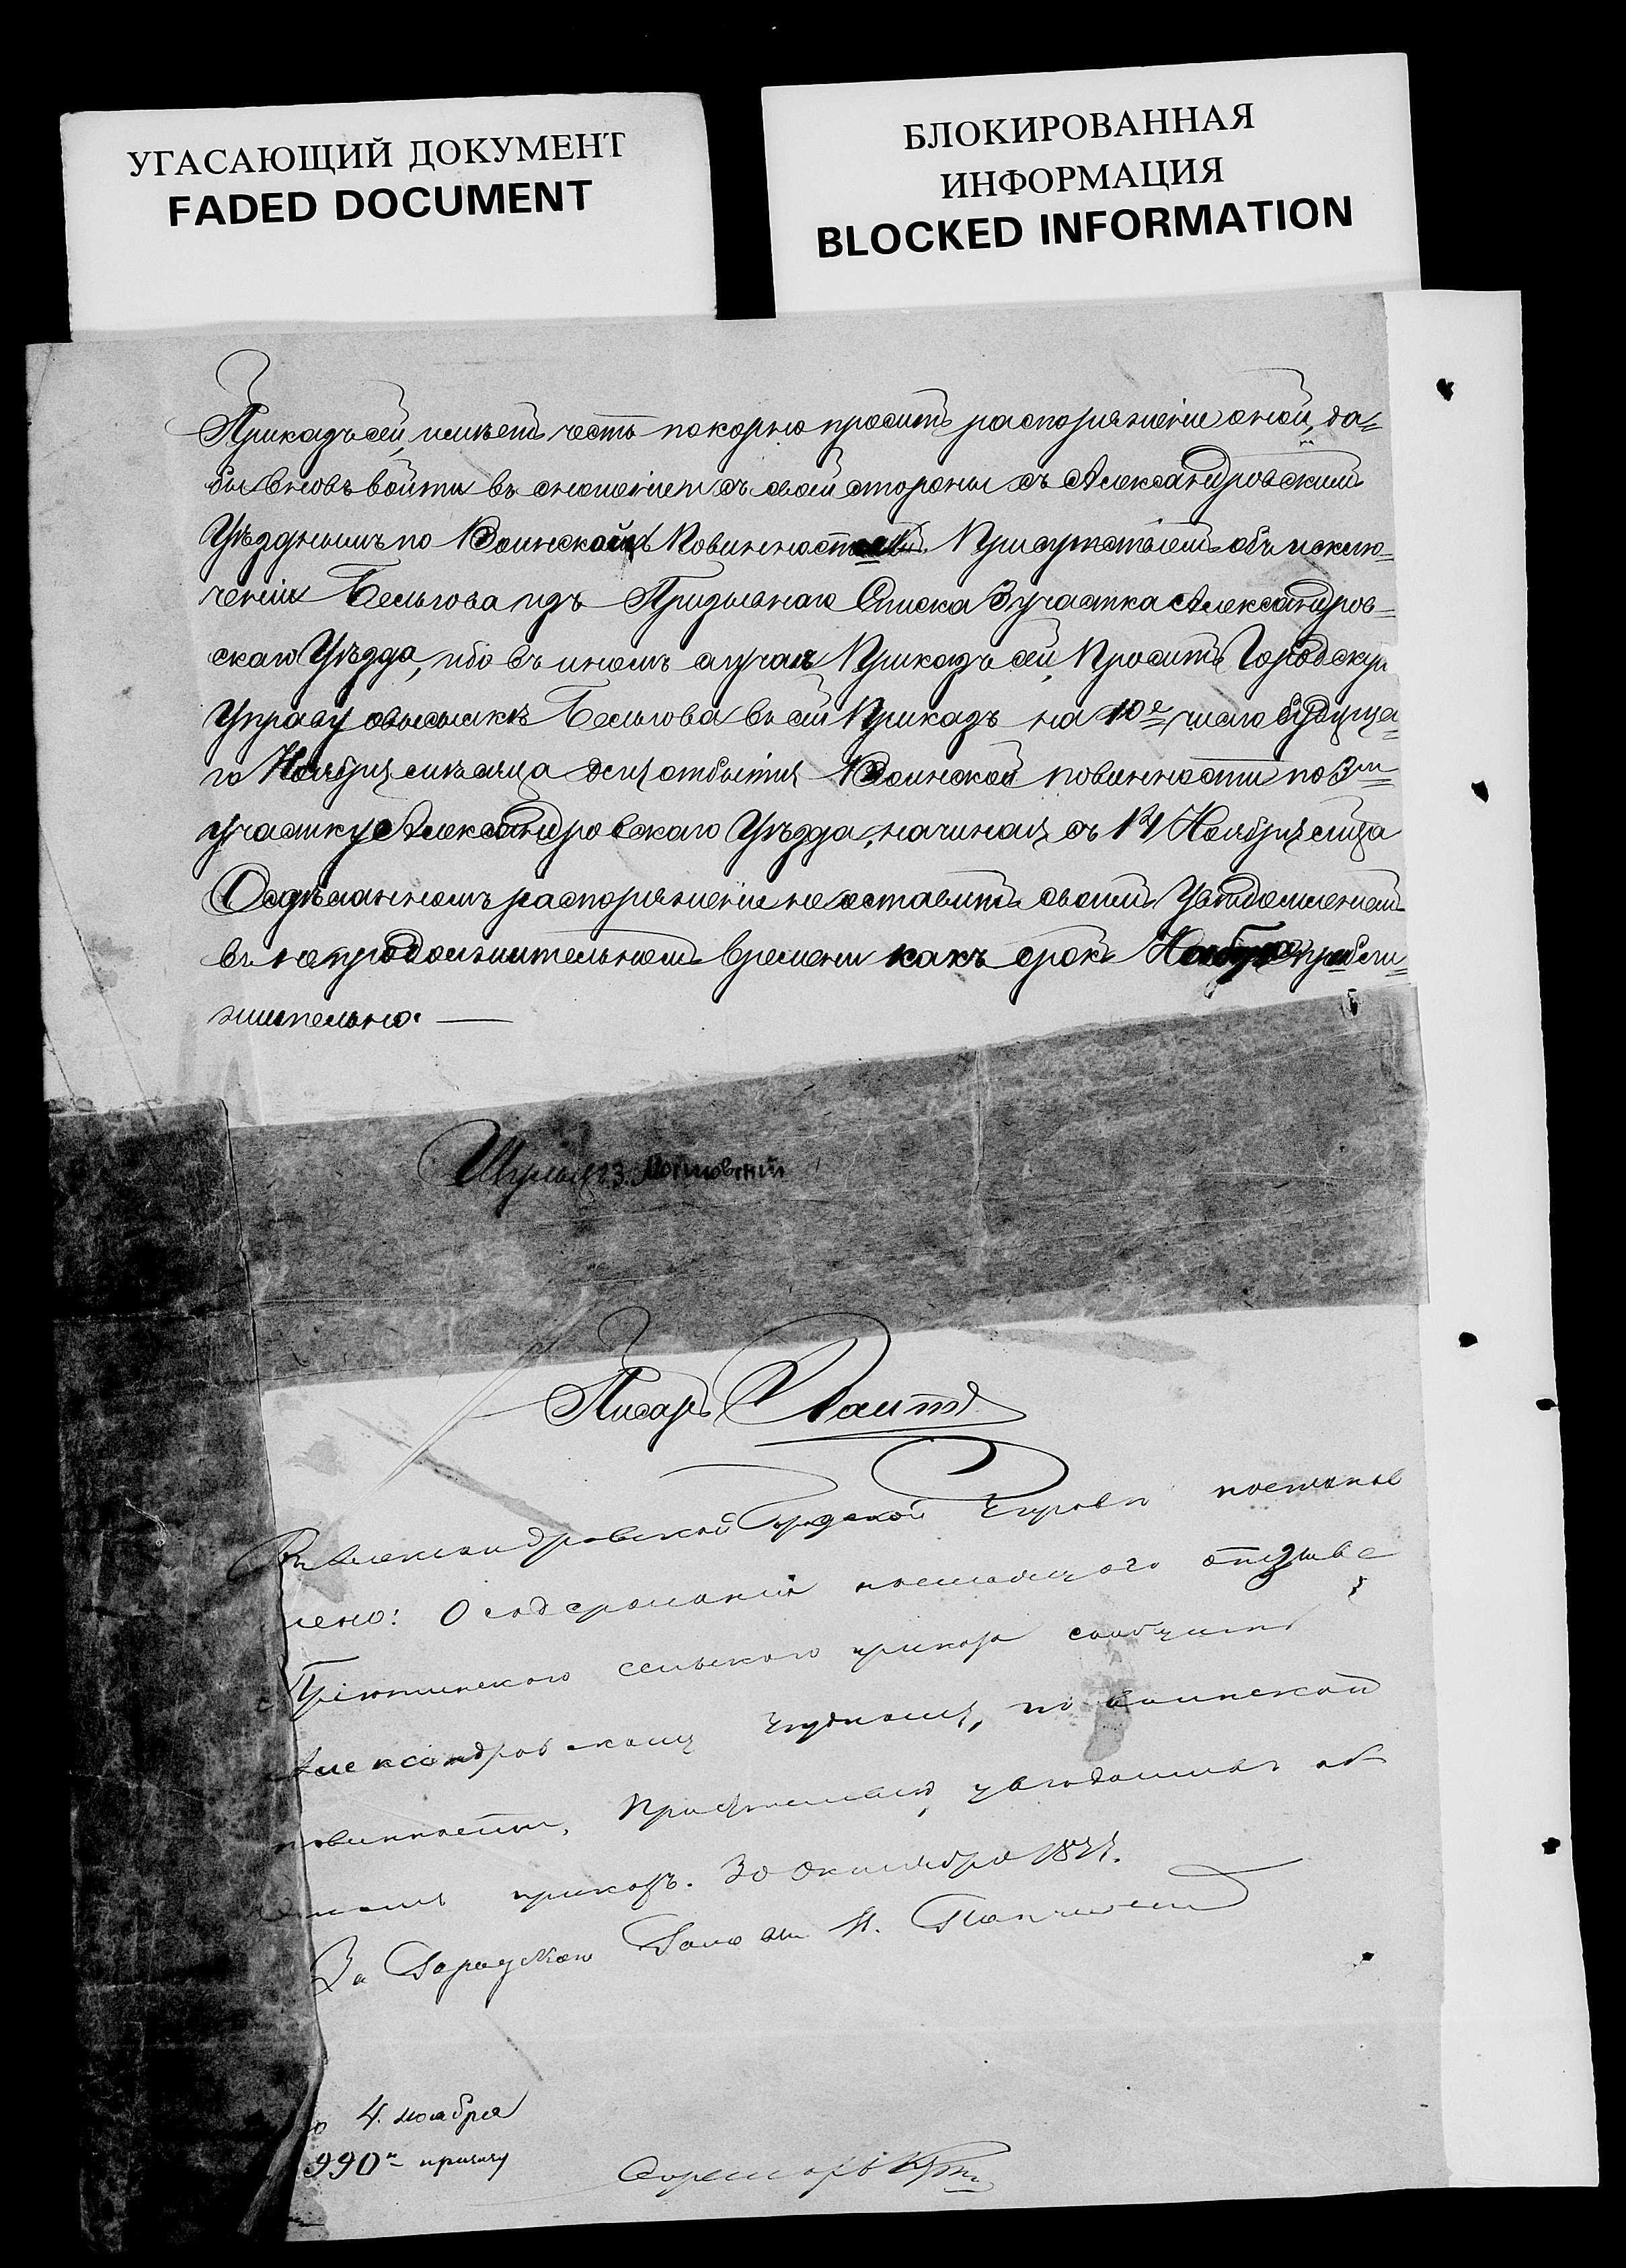 УГАСАЮЩИЙ ДОКУМЕНТ
FADED DOCUMENT
БЛОКИРОВАННАЯ
ИНФОРМАЦИЯ
BLOCKED INFORMATION
Приказъ сей, имѣетъ честь покорно просить распоряженіе оной, да=
бы вновь войти въ сношеніемъ съ своей стороны съ Александровскимъ
Уѣзднымъ по Воинской Повинности Присутствіемъ объ исклю=
ченіи Бельгова изъ Призывнаго Списка 3 участка Александров-
скаго Уѣзда, ибо въ иномъ случаѣ Приказъ сей, Проситъ Городскую
Управу овысылкѣ Бельгова въ сей Приказъ на 10е число будуща=
го Ноября мѣсяца для отбытія Воинской повинности по 3му
участку Александровскаго Уѣзда, начиная съ 14 Ноября мѣца
О сдѣланномъ распоряженіи не оставить своимъ Увѣдомленіемъ
въ непродолжительномъ времени какъ срокъ Набора прибли=
жительно. —
Шульцъ
Писарь
Въ Александровской Городской Управѣ постанов
лено: О содержаніи настоящаго отзыва
сельскаго приказа сообщить
Александровскому Уѣздному, по воинской
повинности, Присутствію, увѣдомивъ объ
приказъ. 30 Октября
За Городскаго Голову
4. ноября
990
Секретарь